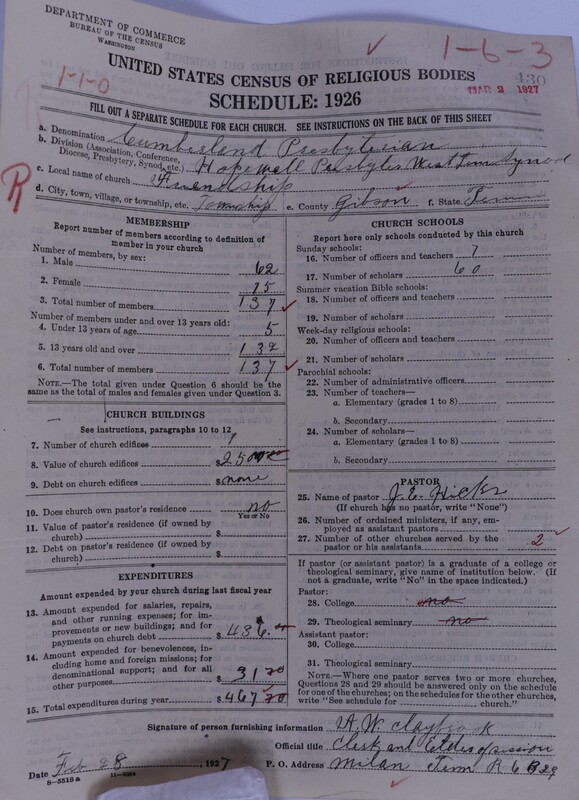 DEPARTMENT OF COMMERCE
BUREAU OF THE CENSUS
WASHINGTON
1-6-3
1-1-0
430
MAR 2 1927
UNITED STATES CENSUS OF RELIGIOUS BODIES
SCHEDULE: 1926
FILL OUT A SEPARATE SCHEDULE FOR EACH CHURCH. SEE INSTRUCTIONS ON THE BACK OF THIS SHEET
R
a. Denomination Cumberland Presbyterian
b. Division (Association, Conference, Diocese, Presbytery, Synod, etc.) Hopewell Presbytery West Tenn Synod
c. Local name of church Friendship
d. City, town, village, or township, etc. Township e. County Gibson f. State Tenn
MEMBERSHIP
Report number of members according to definition of member in your church
Number of members, by sex:
1. Male 62
2. Female 75
3. Total number of members 137
Number of members under and over 13 years old:
4. Under 13 years of age 5
5. 13 years old and over 132
6. Total number of members 137
NOTE.—The total given under Question 6 should be the same as the total of males and females given under Question 3.
CHURCH BUILDINGS
See instructions, paragraphs 10 to 12
7. Number of church edifices 1
8. Value of church edifices $2500
9. Debt on church edifices $none
10. Does church own pastor's residence no
Yes or No
11. Value of pastor's residence (if owned by church) $
12. Debt on pastor's residence (if owned by church) $
EXPENDITURES
Amount expended by your church during last fiscal year
13. Amount expended for salaries, repairs, and other running expenses; for improvements or new buildings; and for payments on church debt $436
14. Amount expended for benevolences, including home and foreign missions; for denominational support; and for all other purposes $31 70
15. Total expenditures during year $467 70
CHURCH SCHOOLS
Report here only schools conducted by this church
Sunday schools:
16. Number of officers and teachers 7
17. Number of scholars 60
Summer vacation Bible schools:
18. Number of officers and teachers
19. Number of scholars
Week-day religious schools:
20. Number of officers and teachers
21. Number of scholars
Parochial schools:
22. Number of administrative officers
23. Number of teachers—
a. Elementary (grades 1 to 8)
b. Secondary
24. Number of scholars—
a. Elementary (grades 1 to 8)
b. Secondary
PASTOR
25. Name of pastor J. E. Hicks
(If church has no pastor, write "None")
26. Number of ordained ministers, if any, employed as assistant pastors
27. Number of other churches served by the pastor or his assistants 2
If pastor (or assistant pastor) is a graduate of a college or theological seminary, give name of institution below. (If not a graduate, write "No" in the space indicated.)
Pastor:
28. College no
29. Theological seminary no
Assistant pastor:
30. College
31. Theological seminary
NOTE.—Where one pastor serves two or more churches, Questions 28 and 29 should be answered only on the schedule for one of the churches; on the schedules for the other churches, write "See schedule for church."
Signature of person furnishing information A. W. Claybrook
Official title Clerk and Elder of session
Date Feb 28, 1927 P. O. Address Milan Tenn R 6 B 29
8-5518 a